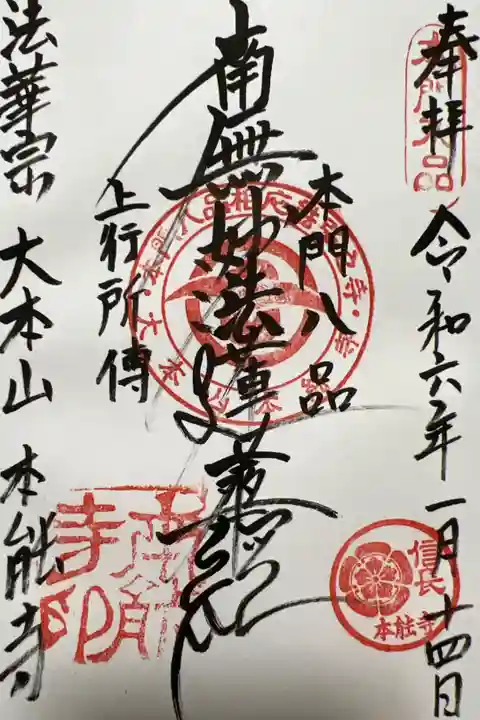 奉拝 令和六年一月十四日
本門八品
南無妙法蓮華経
上行所傳
法華宗 大本山 本能寺
信長
本能寺
本能寺印